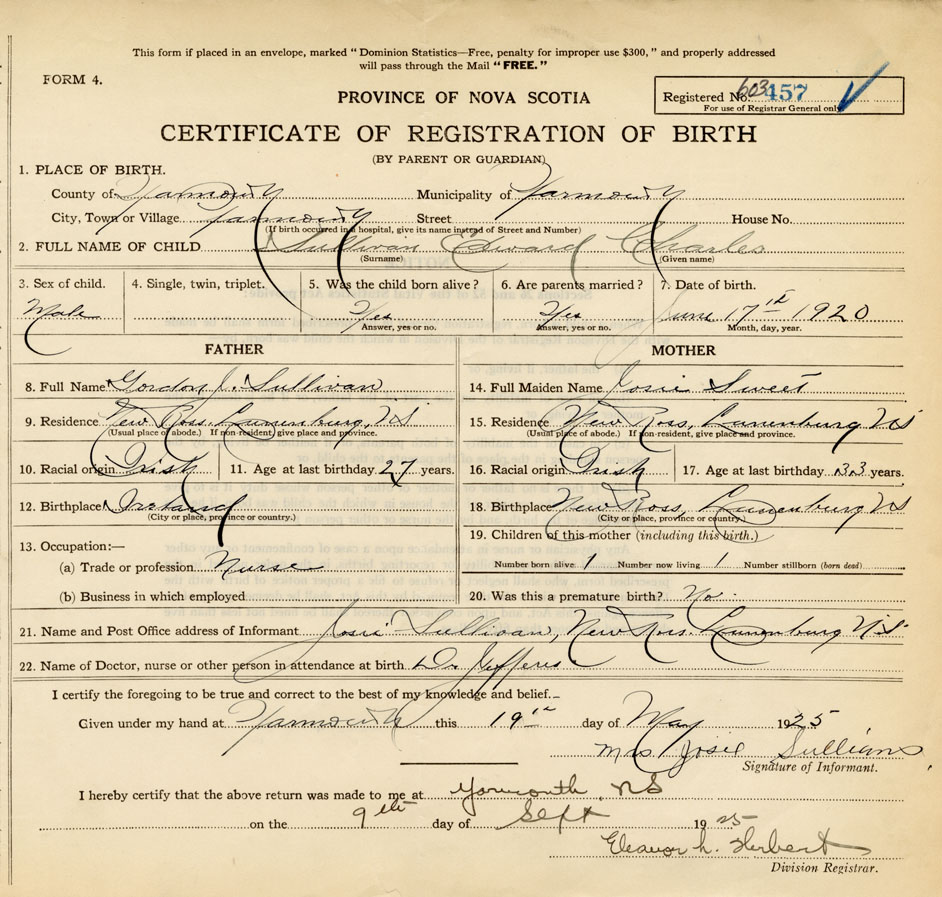 This form if placed in an envelope, marked "Dominion Statistics—Free, penalty for improper use $300," and properly addressed
will pass through the Mail "FREE."
FORM 4.
Registered No. 603457
For use of Registrar General only
PROVINCE OF NOVA SCOTIA
CERTIFICATE OF REGISTRATION OF BIRTH
(BY PARENT OR GUARDIAN)
1. PLACE OF BIRTH.
County of Yarmouth Municipality of Yarmouth
City, Town or Village Yarmouth Street House No.
(If birth occurred in a hospital, give its name instead of Street and Number)
2. FULL NAME OF CHILD Sullivan Edward Charles
(Surname) (Given name)
3. Sex of child. 4. Single, twin, triplet. 5. Was the child born alive? 6. Are parents married? 7. Date of birth.
Male Yes Yes June 17th 1920
Answer, yes or no. Answer, yes or no. Month, day, year.
FATHER MOTHER
8. Full Name Gordon J. Sullivan 14. Full Maiden Name Josie Sweet
9. Residence New Ross, Lunenburg, NS 15. Residence New Ross, Lunenburg NS
(Usual place of abode.) If non-resident, give place and province. (Usual place of abode.) If non-resident, give place and province.
10. Racial origin Irish 11. Age at last birthday 27 years. 16. Racial origin Irish 17. Age at last birthday 33 years.
12. Birthplace Ireland 18. Birthplace New Ross, Lunenburg NS
(City or place, province or country.) (City or place, province or country.)
13. Occupation:— 19. Children of this mother (including this birth.)
(a) Trade or profession Nurse Number born alive 1 Number now living 1 Number stillborn (born dead)
(b) Business in which employed 20. Was this a premature birth? No.
21. Name and Post Office address of Informant Josie Sullivan, New Ross. Lunenburg N.S.
22. Name of Doctor, nurse or other person in attendance at birth. Dr.
I certify the foregoing to be true and correct to the best of my knowledge and belief.
Given under my hand at Yarmouth this 19th day of May 1925
Mrs. Josie Sullivan
Signature of Informant.
I hereby certify that the above return was made to me at Yarmouth. NS
on the 9th day of Sept 1925
Eleanor L. Herbert
Division Registrar.